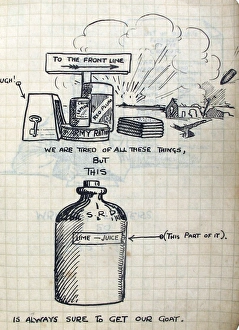 TO THE FRONT LINE
UGH!
ARMY RATIO
WE ARE TIRED OF ALL THESE THINGS,
BUT
THIS
S.R.D.
LIME-JUICE
(THIS PART OF IT).
IS ALWAYS SURE TO GET OUR GOAT.